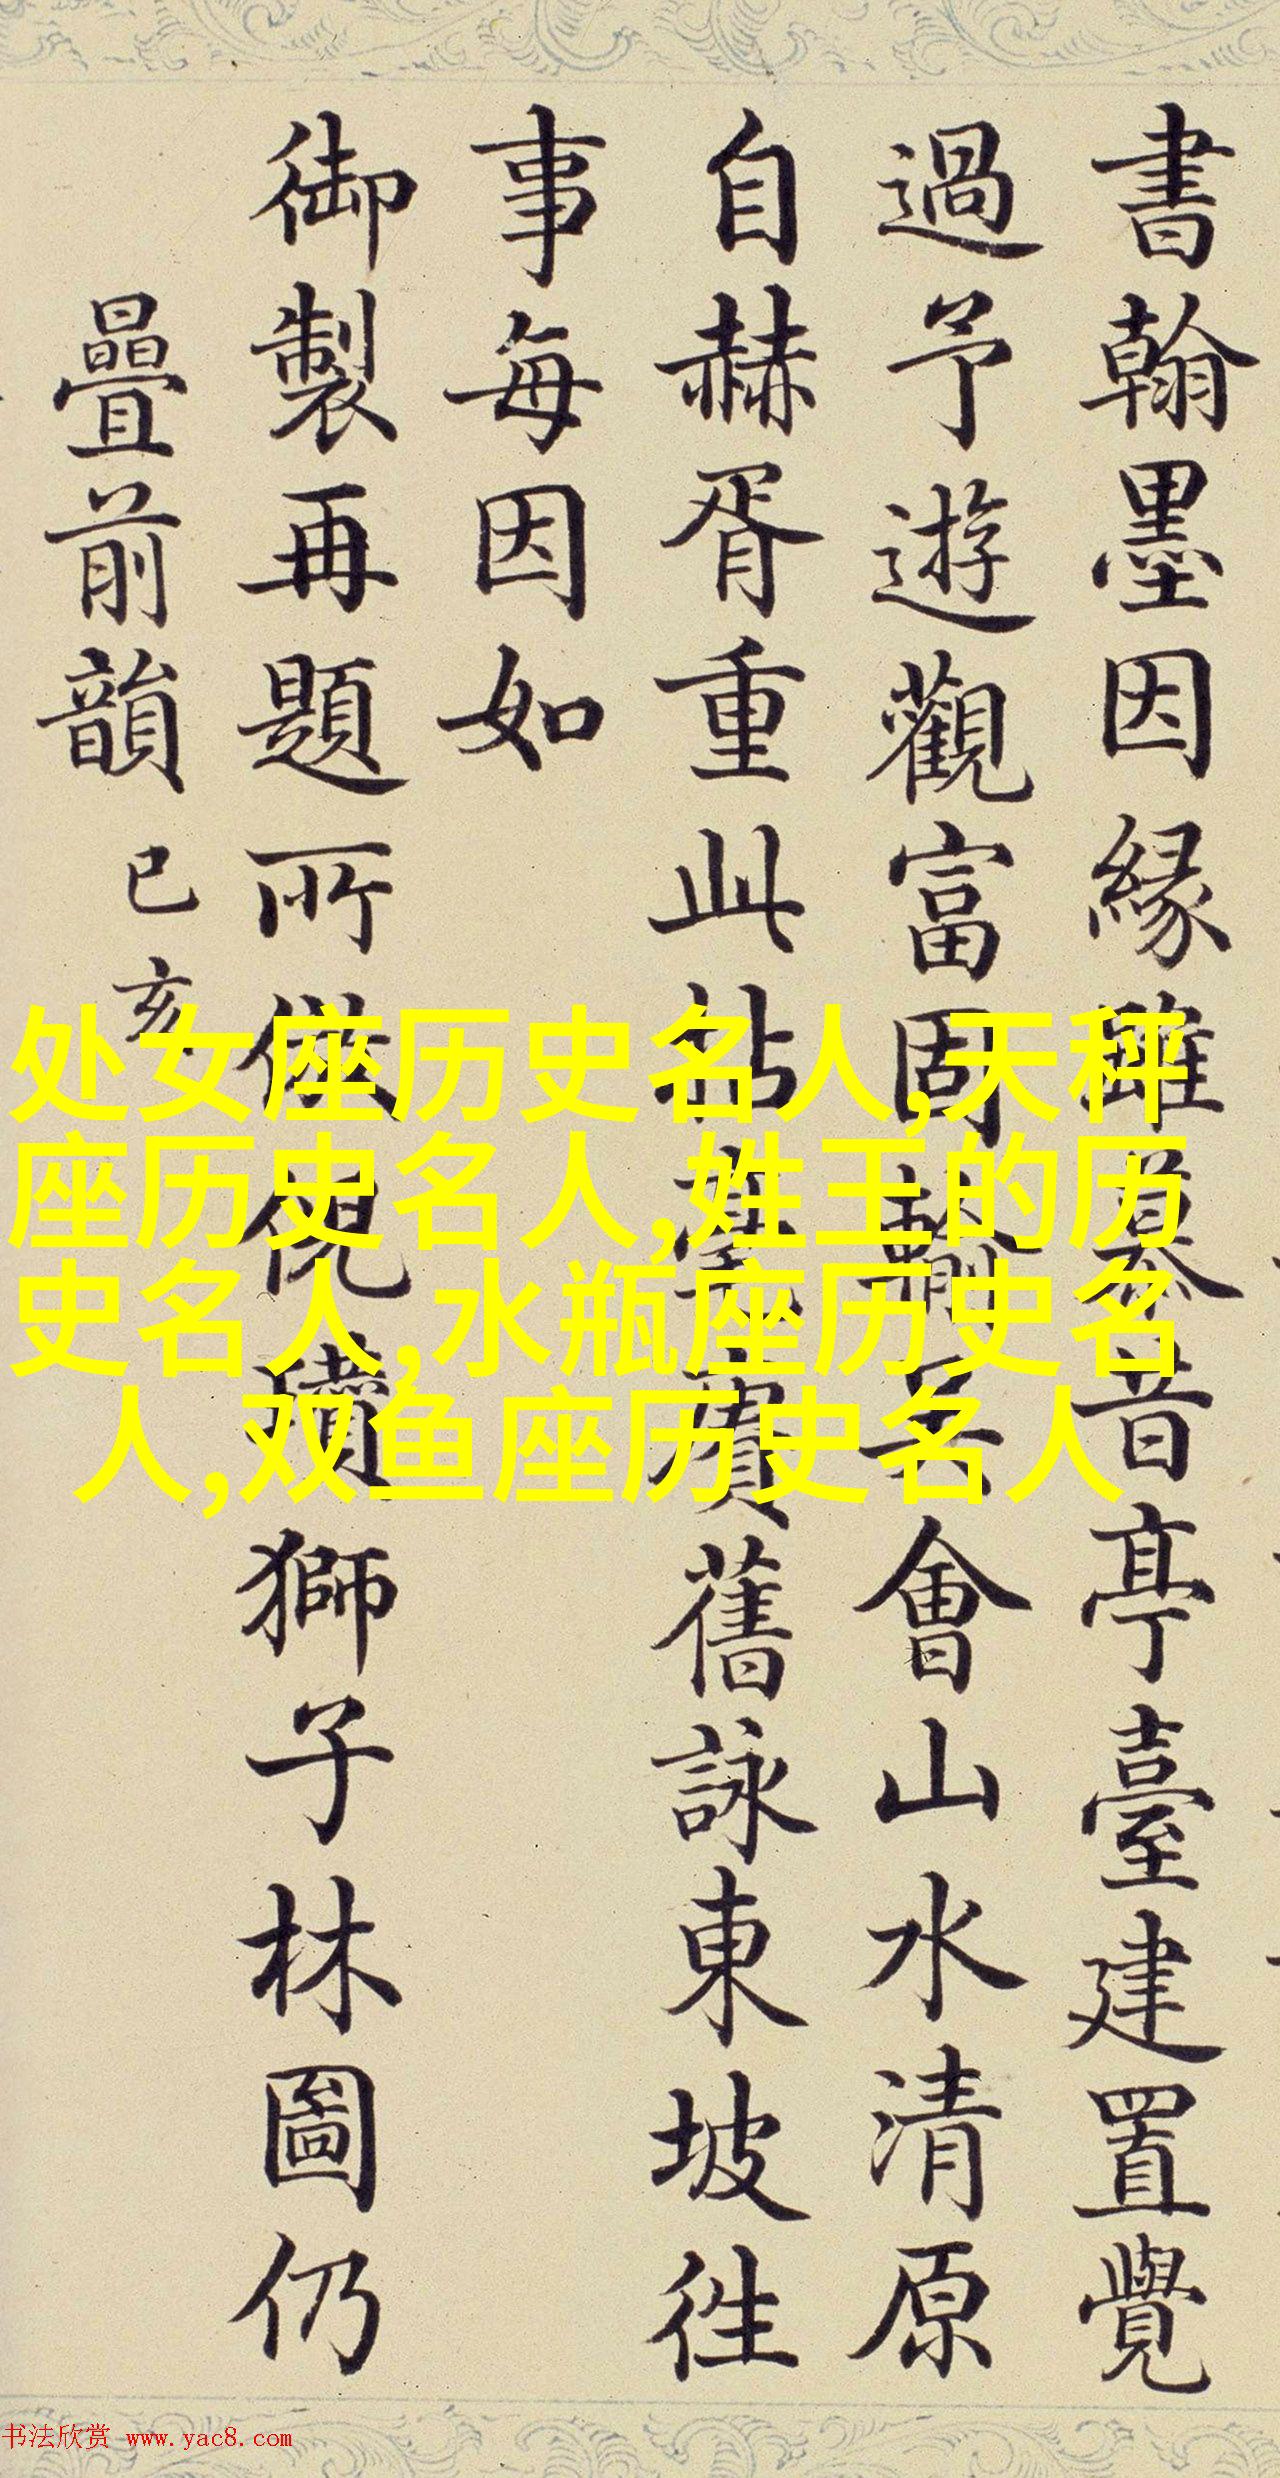 書翰墨因緣雖慕昔亭臺建置覺
過予遊觀富固輸吳會山水清原
自赫胥重此拈毫賡舊詠東坡往
事每因如
御製再題所倪瓚獅子林圖仍
疊前韻 己亥
处女座历史名人,天秤
座历史名人,姓王的历
史名人,水瓶座历史名
人,双鱼座历史名人
书法欣赏 www.yac8.com